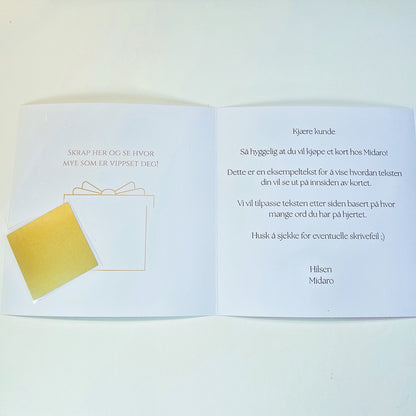 SKRAP HER OG SE HVOR
MYE SOM ER VIPPSET DEG!
Kjære kunde
Så hyggelig at du vil kjøpe et kort hos Midaro!
Dette er en eksempeltekst for å vise hvordan teksten
din vil se ut på innsiden av kortet.
Vi vil tilpasse teksten etter siden basert på hvor
mange ord du har på hjertet.
Husk å sjekke for eventuelle skrivefeil ;)
Hilsen
Midaro